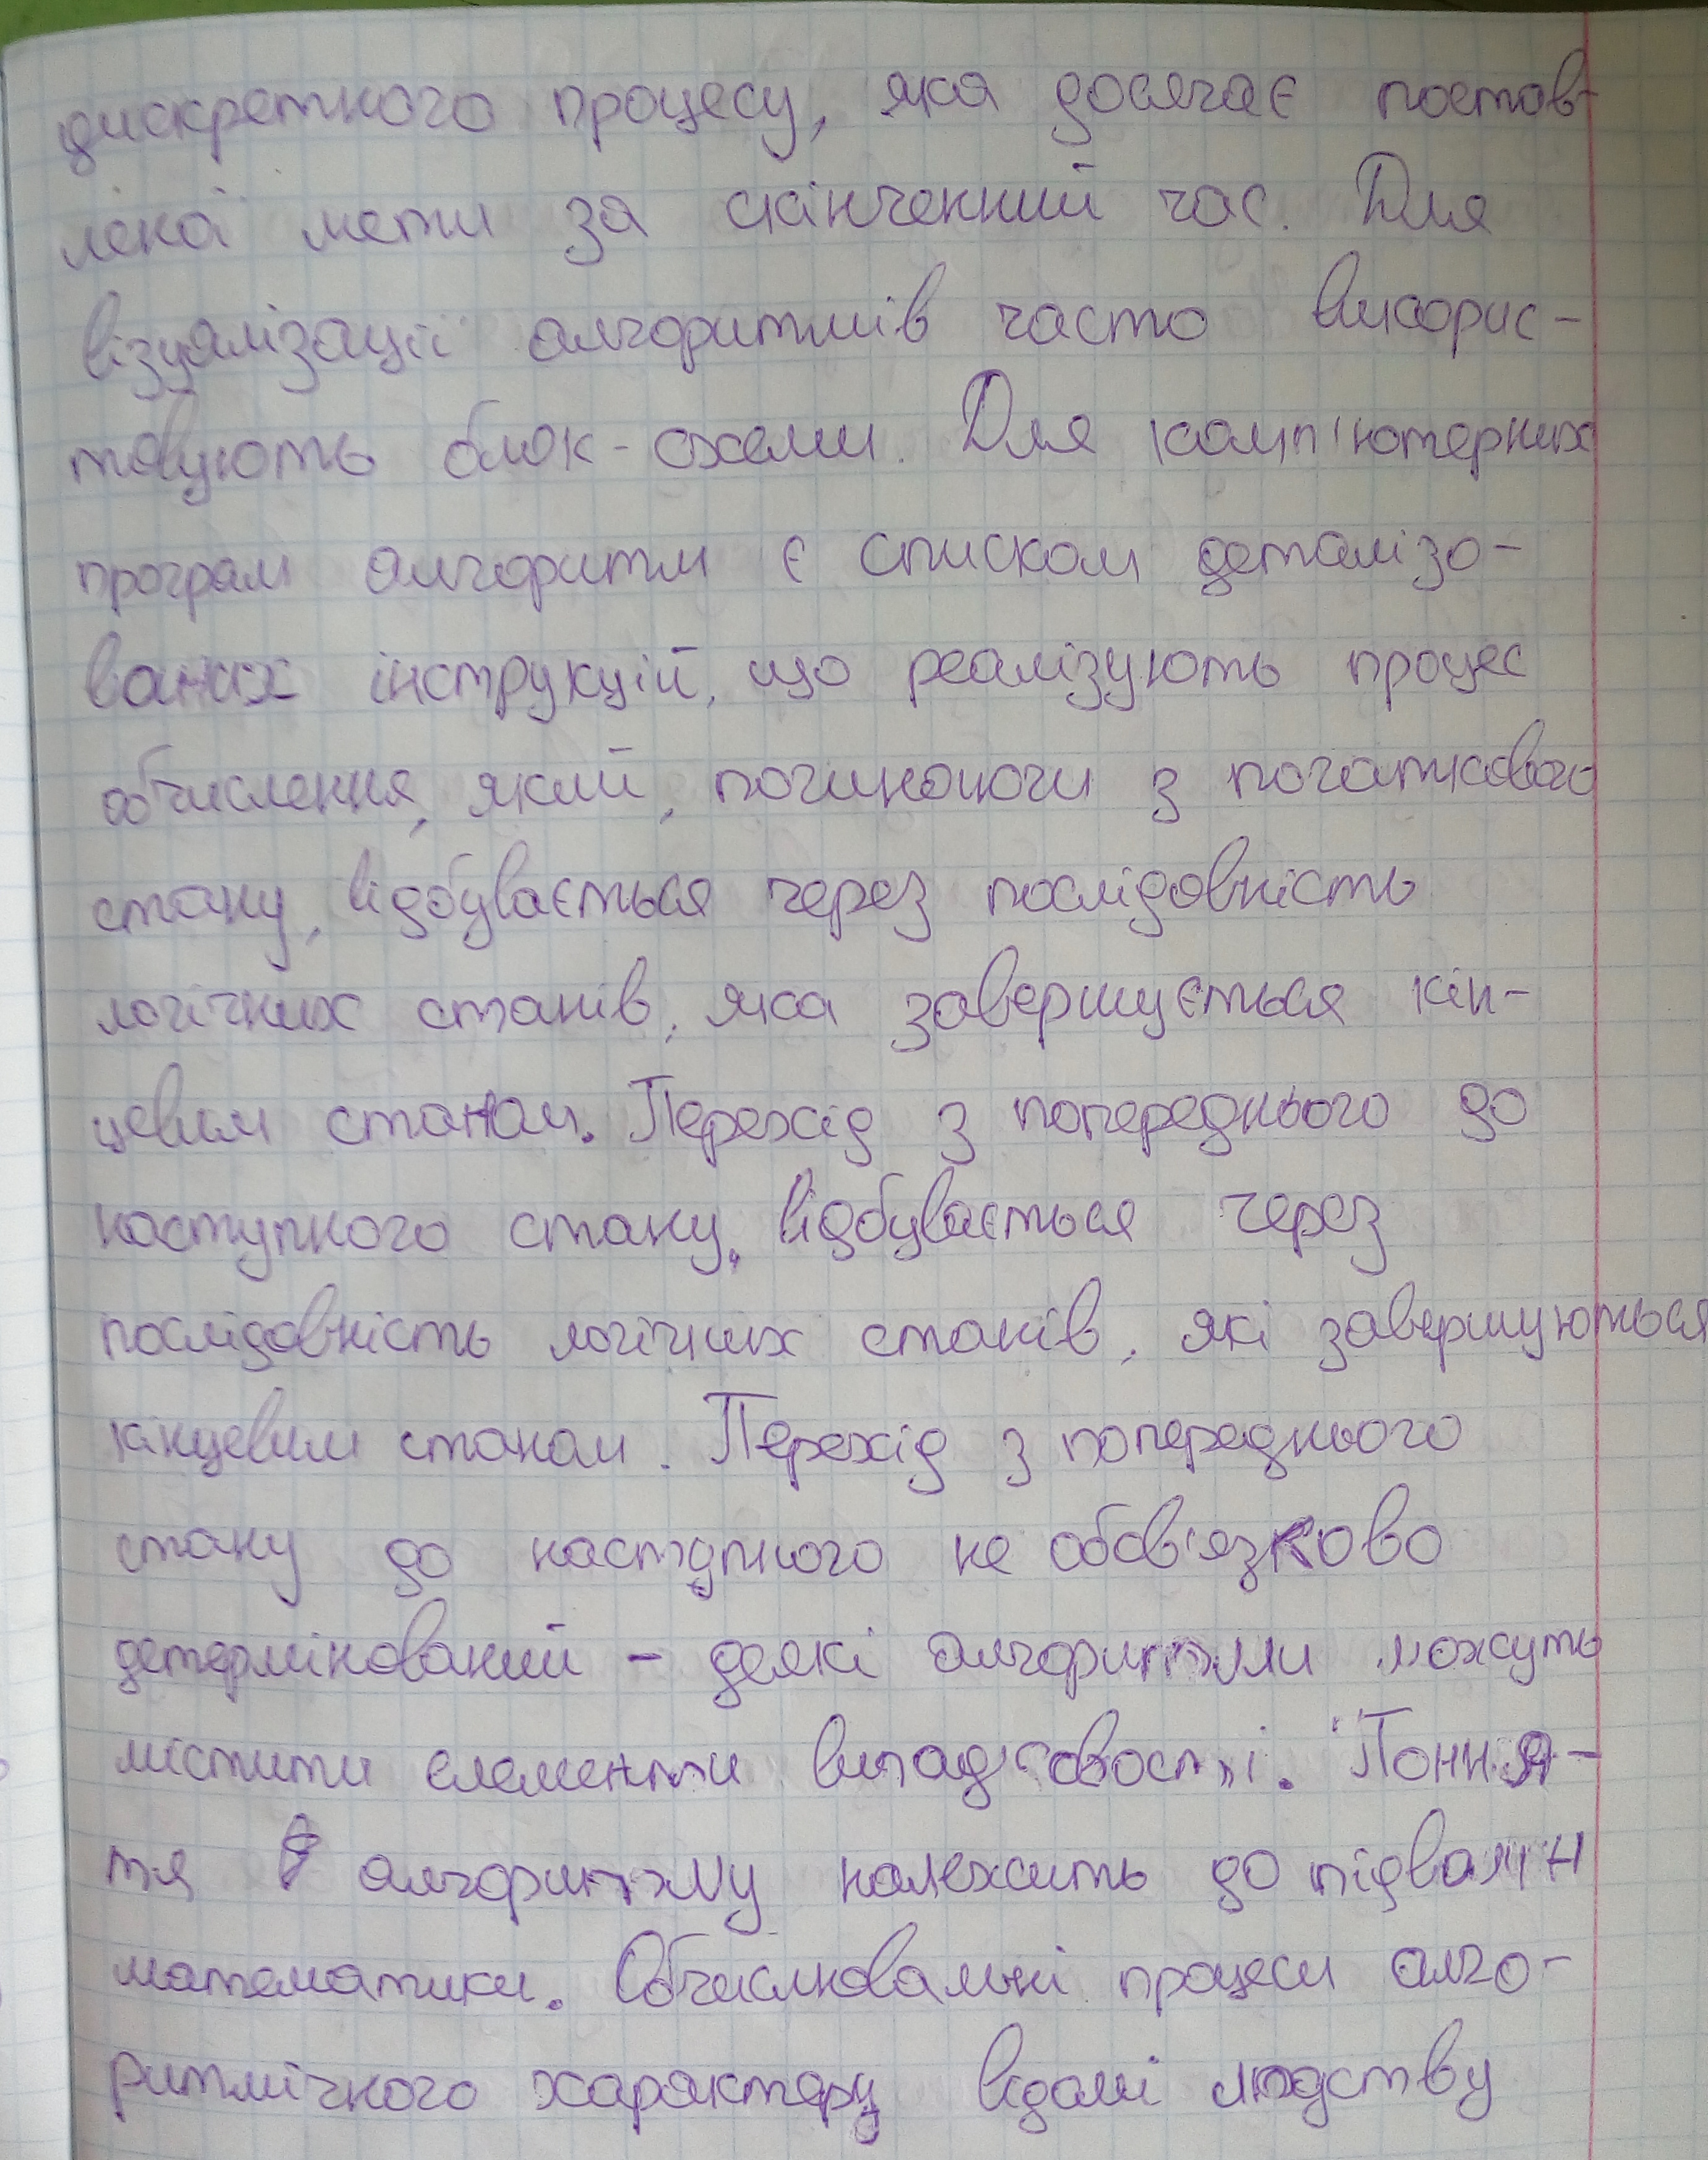 дискретного процесу, яка досягає постав-
леної мети за скінченний час. Для
візуалізації алгоритмів часто викорис-
товують блок-схеми. Для комп'ютерних
програм алгоритм є списком деталізо-
ваних інструкцій, що реалізують процес
обчислення, який, починаючи з початкового
стану, відбувається через послідовність
логічних станів, яка завершується кін-
цевим станом. Перехід з попереднього до
наступного стану, відбувається через
послідовність логічних станів, які завершуються
кінцевим станом. Перехід з попереднього
стану до наступного не обов'язково
детермінований - деякі алгоритми можуть
містити елементи випадковості. Поння-
тя алгоритму належить до підвалин
математики. Обчислювальні процеси алго-
ритмічного характеру відомі людству